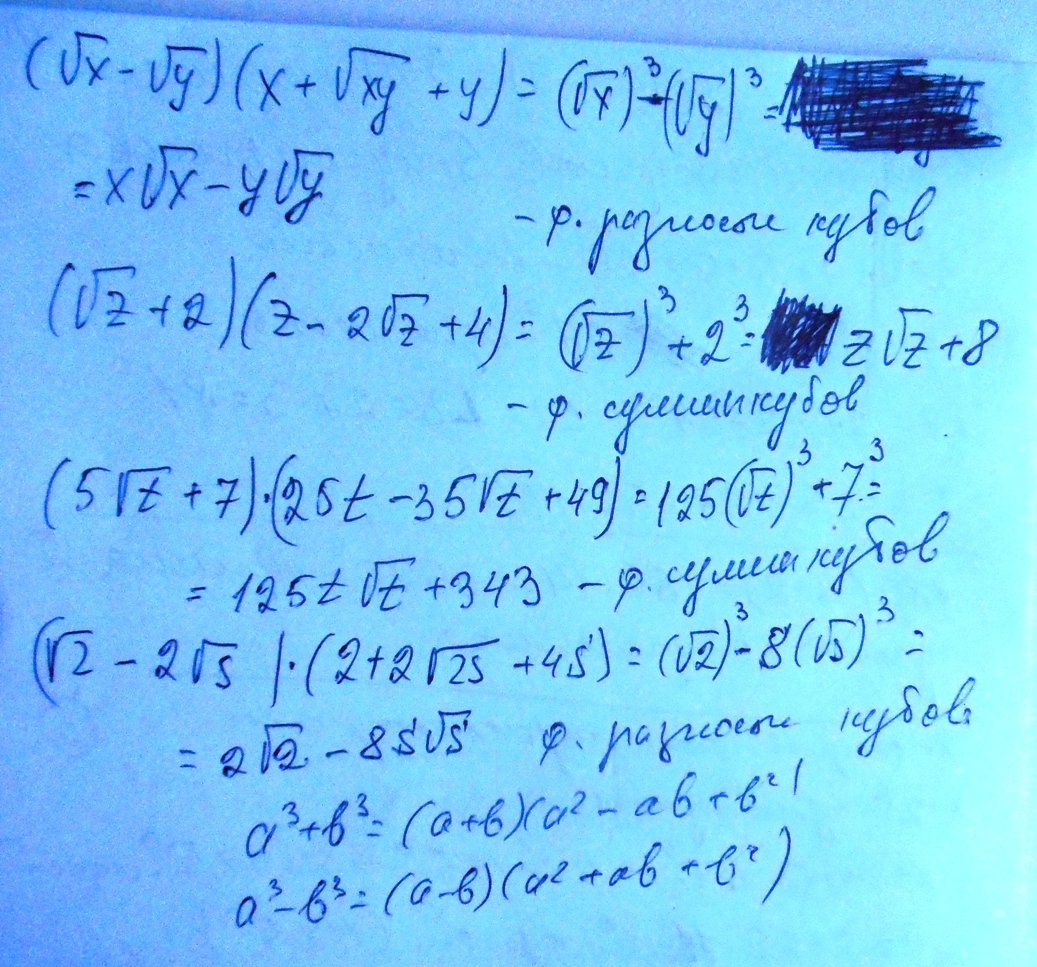 (√x - √y)(x + √xy + y) = (√x)³ - (√y)³ =
= x√x - y√y
- ф. разности кубов
(√z + 2)(z - 2√z + 4) = (√z)³ + 2³ = z√z + 8
- ф. суммы кубов
(5√t + 7)·(25t - 35√t + 49) = 125(√t)³ + 7³ =
= 125t√t + 343 - ф. суммы кубов
(√2 - 2√s)·(2 + 2√2s + 4s) = (√2)³ - 8(√s)³ =
= 2√2 - 8s√s ф. разности кубов
a³ + b³ = (a + b)(a² - ab + b²)
a³ - b³ = (a - b)(a² + ab + b²)